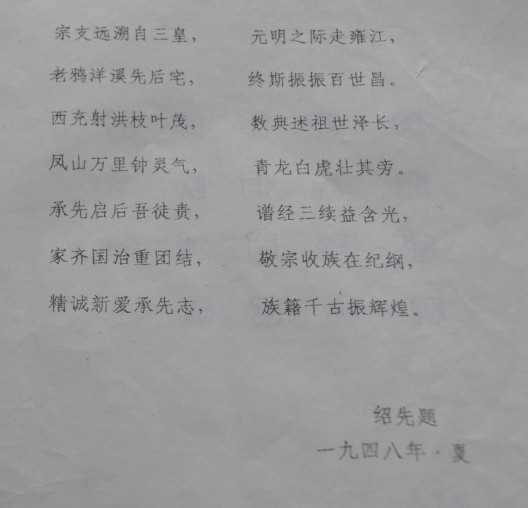 宗支远溯自三皇， 元明之际走雍江，
老鸦洋溪先后宅， 终斯振振百世昌。
西充射洪枝叶茂， 数典述祖世泽长，
凤山万里钟灵气， 青龙白虎壮其旁。
承先启后吾徒责， 谱经三续益含光，
家齐国治重团结， 敬宗收族在纪纲，
精诚新爱承先志， 族籍千古振辉煌。
绍先题
一九四八年·夏